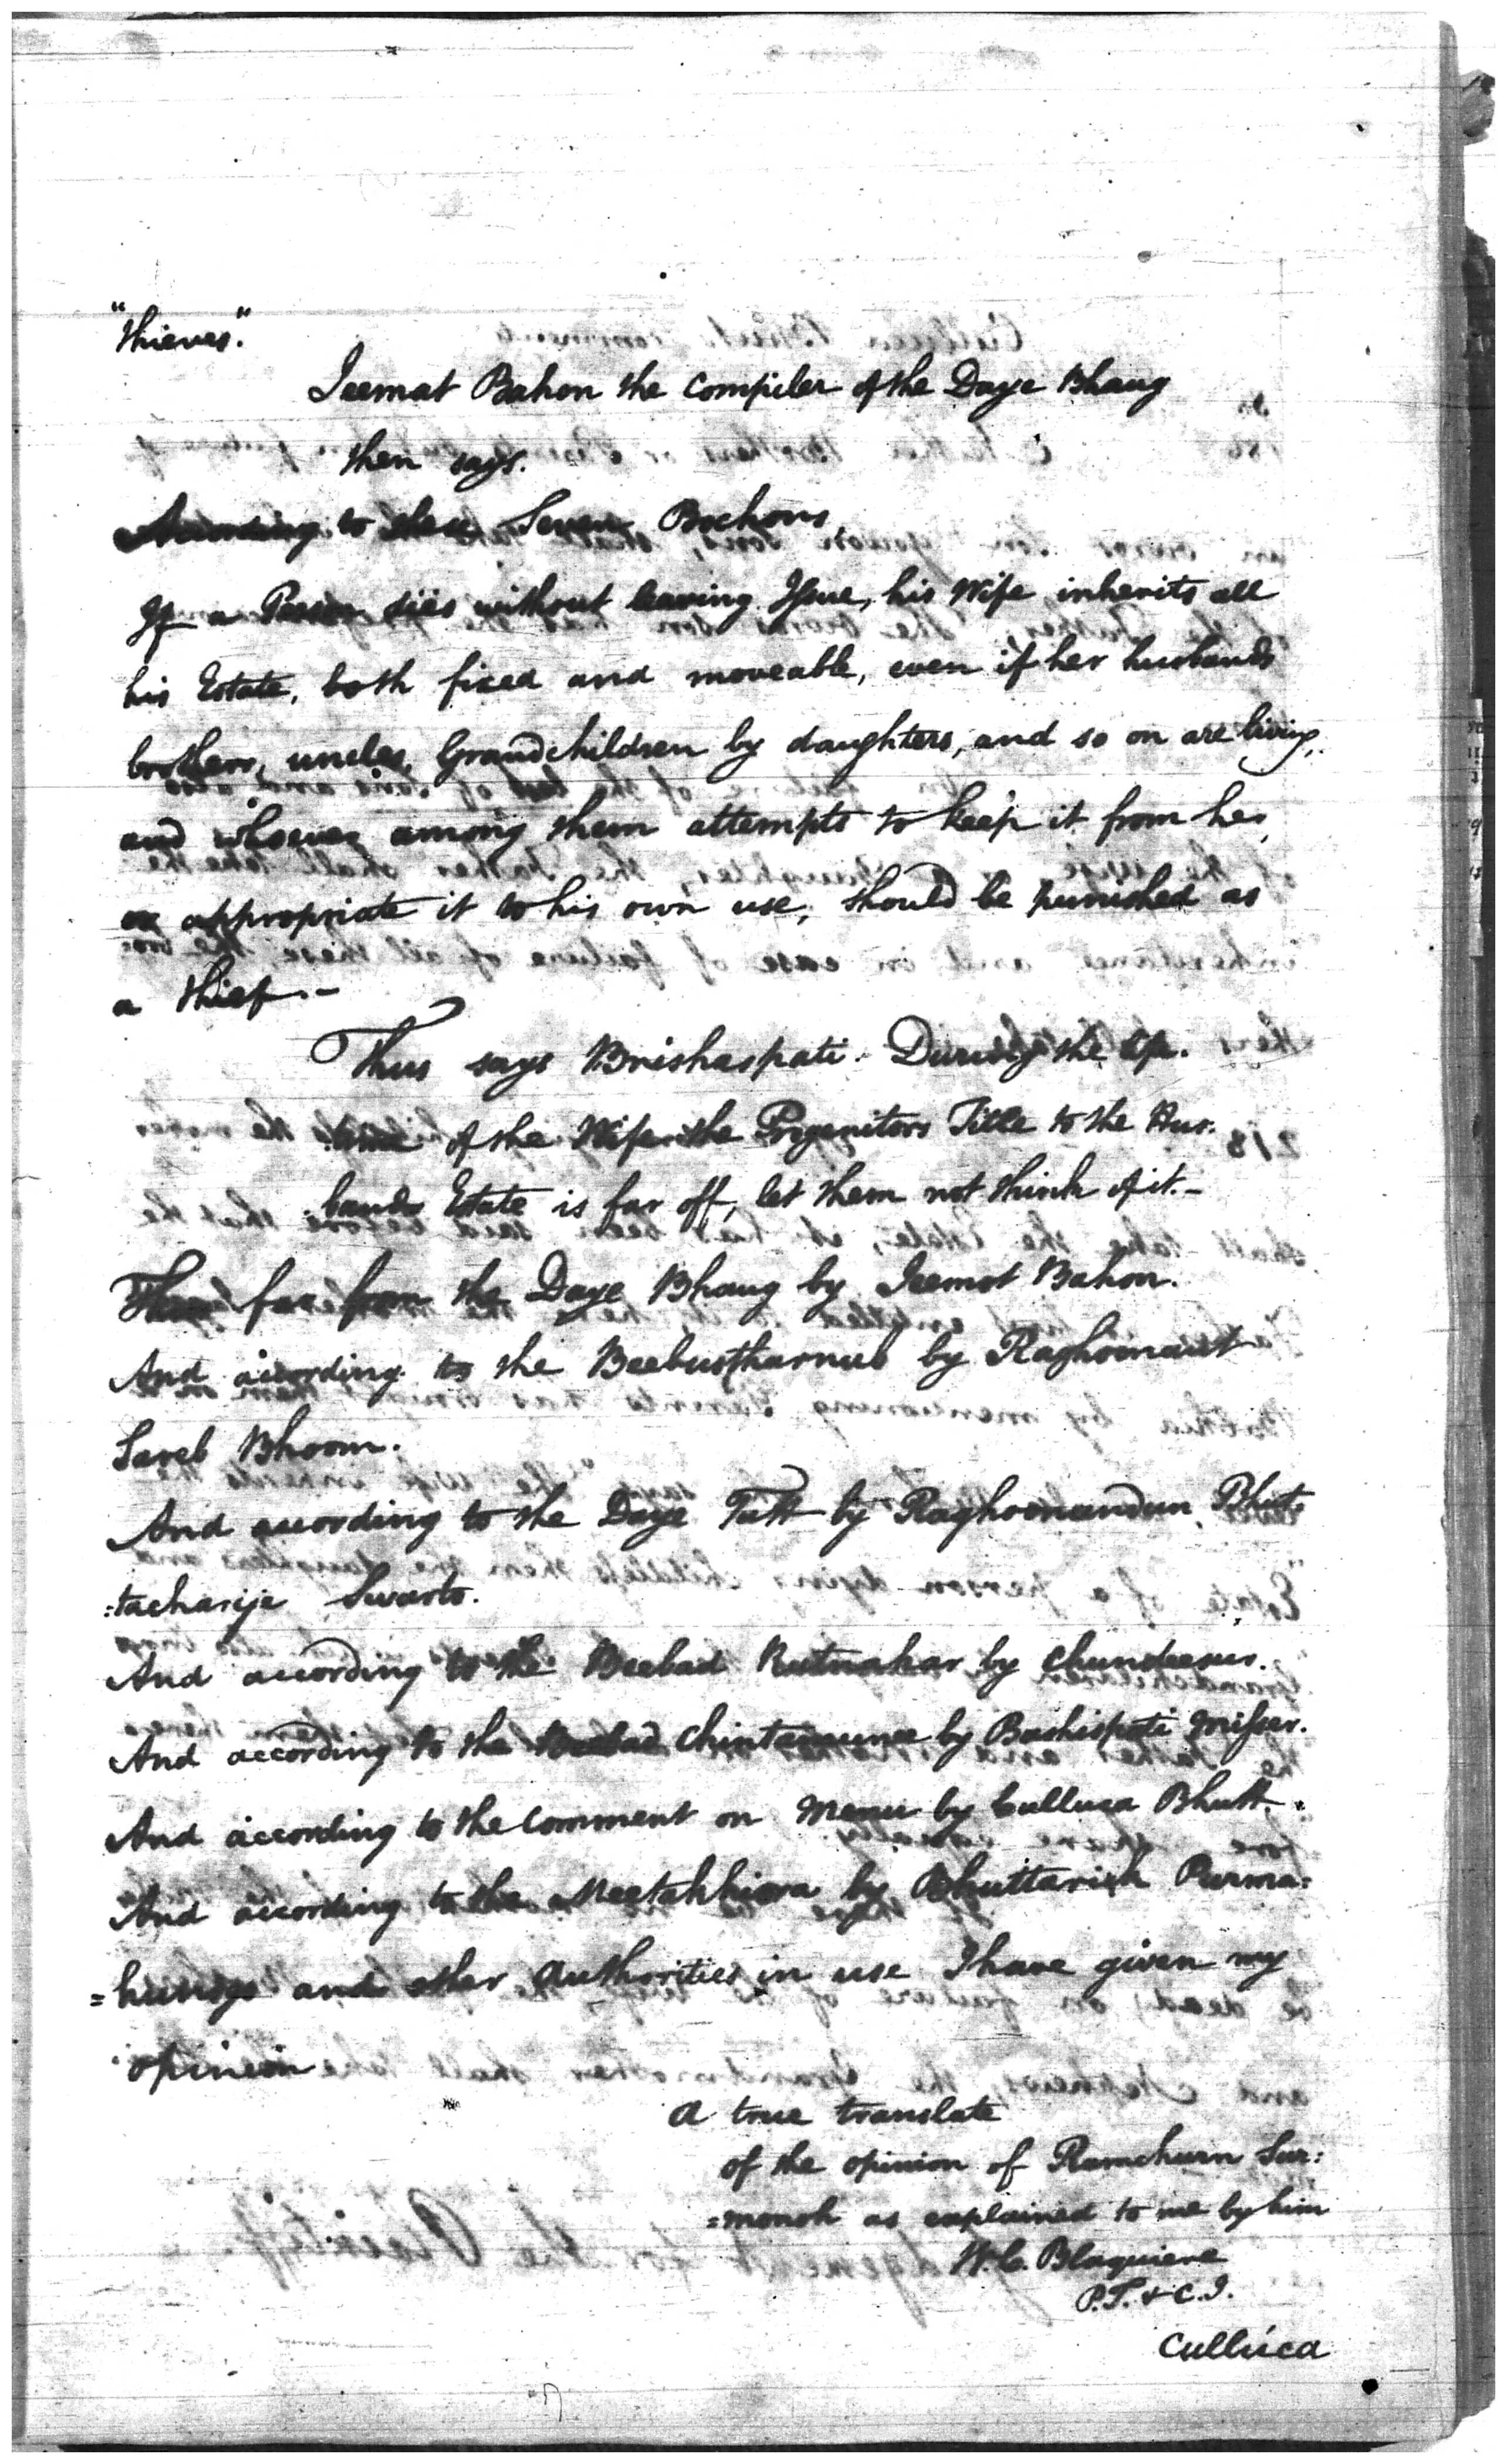 "thieves."
Jeemat Bahon the compiler of the Daye Bhaug
then says.
According to these Seven Bochons,
If a Person dies without leaving Issue, his Wife inherits all
his Estate, both fixed and moveable, even if her husbands
brothers, uncles, Grandchildren by daughters, and so on are living,
and whoever among them attempts to keep it from her,
or appropriate it to his own use, should be punished as
a thief.-
Thus says Brishaspati. During the life
time of the Wife the Progenitors Title to the Hus:
:bands Estate is far off, let them not think of it.-
Thus far from the Daye Bhaug by Jeemot Bahon.
And according to the Beebustharnub by Raghonaut
Sareb Bhoom.
And according to the Daye Tutt by Raghoonandun Bhut:
:tacharije Swarto.
And according to the Beebad Rutnakar by Chundeesur.
And according to the Beebad Chintamune by Bashispati Misser.
And according to the Comment on Menu by Culluca Bhutt.
And according to the Meetakhiora by Bhuttarick Purma:
=hungs and other Authorities in use I have given my
opinion
A true translate
of the opinion of Ramchurn Sur:
=monoh as explained to me by him
W. C. Blaquiere
P. T. & C. I.
Culluca